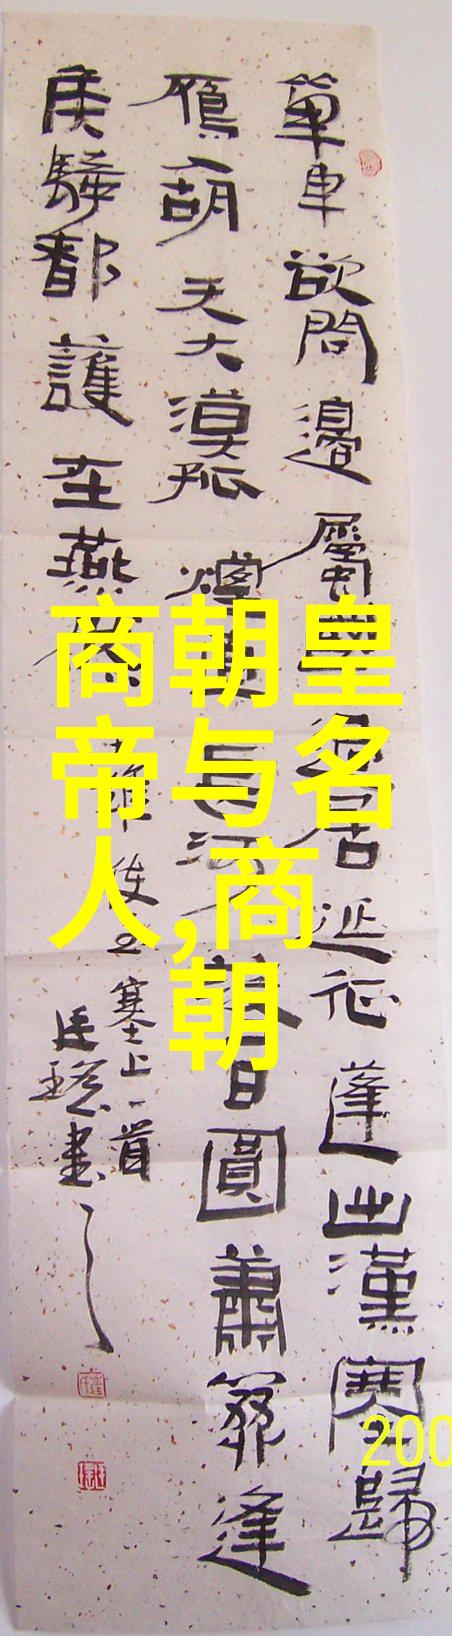 單車欲問邊屬國過居延征蓬出漢塞歸
雁入胡天大漠孤煙直長河落日圓蕭關逢
侯騎都護在燕然
維使至塞上一首
書
商朝皇
帝与名
人,商
朝
200